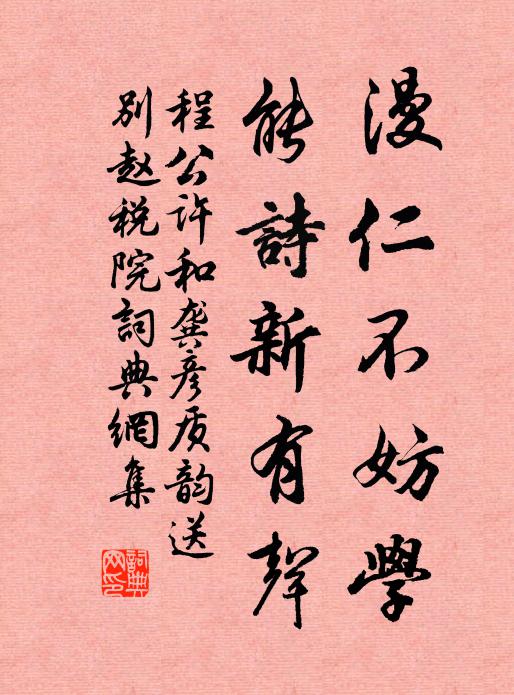 漫仁不妨學
能詩新有聲
程公许和龚彦质韵送
别赵税院詞典網集
詞典
网印